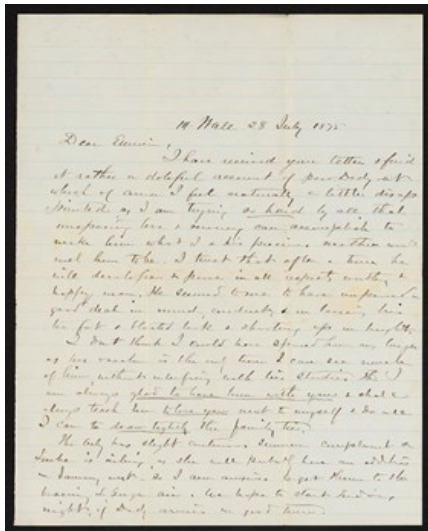 Wall 28 July 1875
Dear
I have received your letter & find
it rather a doleful account of poor Dody at
which of course I feel naturally a little disap
pointed as I am trying so hard by all that
unsparing love & money can accomplish to
make him what I & his precious mother would
wish him to be. I trust that after a time he
will develop & prove in all respects worthy &
happy man. He seemed to me to have improved a
good deal in mind, & in losing his
too fat & bloated look & shooting up in height.
I don't think I could have spared him any longer
as his vacation is the only time I can see much
of him without interfering with his studies tho' I
am always glad to have him with you & shall
always teach him to love you next to myself & do all
I can to draw tightly the family ties.
The baby has slight summer complaint &
is ailing as she will have an addition
in January next. So I am anxious to get them to the
bracing air & we hope to start
night, if Dody arrives in good time.